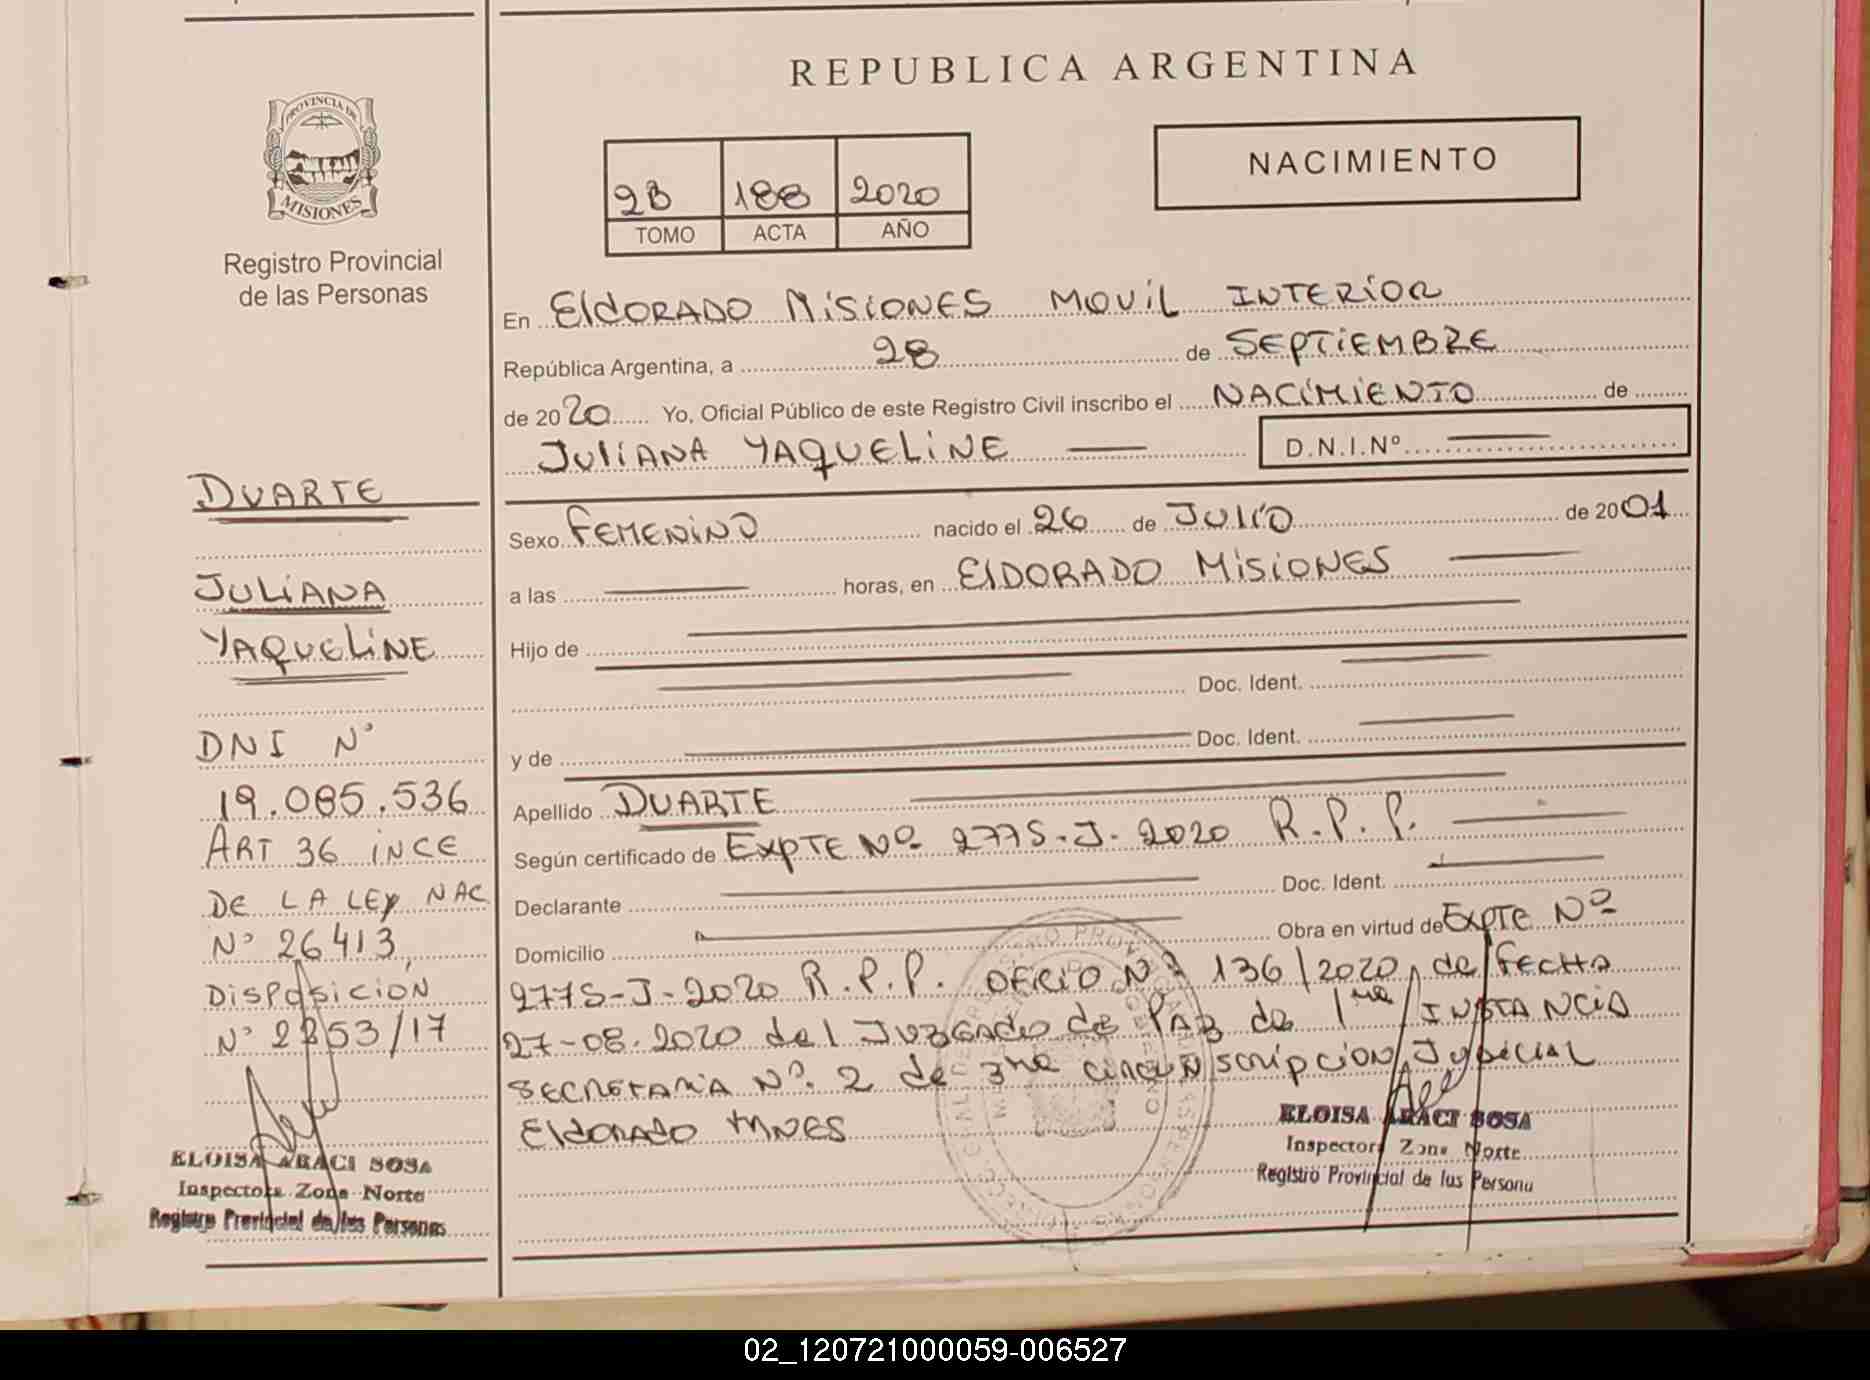 REPUBLICA ARGENTINA
PROVINCIA DE
MISIONES
Registro Provincial
de las Personas
NACIMIENTO
2B 188 2020
TOMO ACTA AÑO
En ElDORADO MiSiONES MOViL INTERiOR
República Argentina, a 28 de SEPTiEMBRE
de 2020 Yo, Oficial Público de este Registro Civil inscribo el NACiMiENTO de
JULiANA YAQUELiNE D.N.I.Nº
Sexo FEMENiNO nacido el 26 de JULiO de 2001
a las horas, en ElDORADO MiSiONES
Hijo de
Doc. Ident.
y de Doc. Ident.
Apellido DUARTE
Según certificado de EXPTE Nº 2775-J-2020 R.P.P.
Declarante Doc. Ident.
Domicilio Obra en virtud de EXPTE Nº
2775-J-2020 R.P.P. OFICIO Nº 136/2020, de FECHA
27-08-2020 del JUZGADO de PAZ de 1ra INSTANCIA
SECRETARIA Nº 2 de 3ra circunscripcion Judicial
ElDORADO MNES
ELOISA ARACI SOSA
Inspectora Zona Norte
Registro Provincial de las Persona
DUARTE
JULiANA
YAQUELiNE
DNI Nº
19.085.536
ART 36 iNCE
DE LA LEY NAC
Nº 26413,
DISPOSICIÓN
Nº 2253/17
ELOISA ARACI SOSA
Inspectora Zona Norte
Registro Provincial de las Personas
02_120721000059-006527